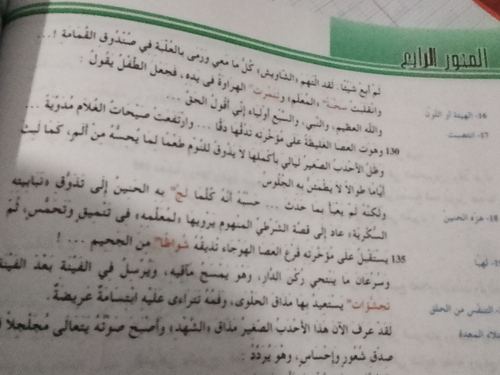 المحور الرابع
لم أبع شيئا. لقد التهم «الشاويش» كل ما معي ورمى بالعلبة في صندوق القمامة !...
وانقلبت سحنة «المعلم» وتنمرت الهراوة في يده، فجعل الطفل يقول:
والله العظيم، والنبي، والسبع أولياء إني أقول الحق ...
130 وهوت العصا الغليظة على مؤخرته تدقها دقا ... وارتفعت صيحات الغلام مدوية ...
وظل الأحدب الصغير ليالي بأكملها لا يذوق للنوم طعما لما يحسه من ألم، كما لبث
أياما طوالا لا يطمئن به الجلوس.
ولكنه لم يعبأ بما حدث ... حسبه أنه كلما لج به الحنين إلى تذوق «نبابيته
السكرية» عاد إلى قصة الشرطي المنهوم يرويها «لمعلمه» في تنميق وتحمس، ثم
يستقبل على مؤخرته قرع العصا الهوجاء تذيقه شواظا من الجحيم ... !
135 وسرعان ما ينتحي ركن الدار، وهو يمسح مآقيه، ويرسل في الفينة بعد الفينة
تجشؤات يستعيد بها مذاق الحلوى، وفمه تتراءى عليه ابتسامة عريضة.
لقد عرف الآن هذا الأحدب الصغير مذاق «الشهد» وأصبح صوته يتعالى مجلجلا
صدق شعور وإحساس، وهو يردد :
16- الهيئة أو اللون
17-
18- هزه الحنين
التنفس من الحلق
المعدة